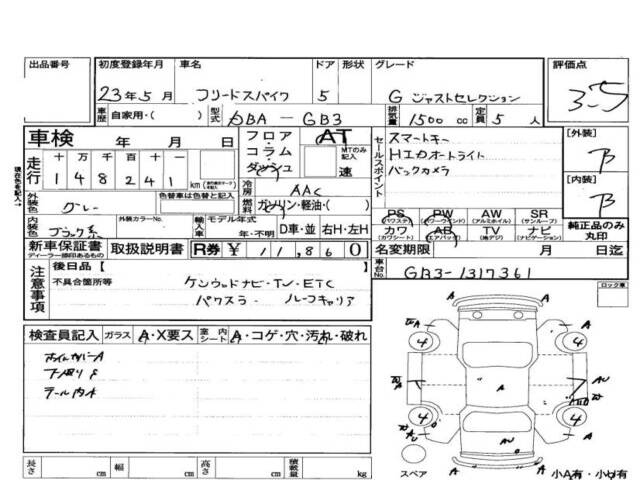 出品番号 初度登録年月 車名 ドア 形状 グレード 評価点
23年5月 フリードスパイク 5 G ジャストセレクション 3.5
車歴 自家用・( ) 型式 DBA－GB3 排気量 1500cc 定員 5人
車検 年 月 日 フロア・コラム・ダッシュ AT MTのみ記入 速
走行 十万千百十一 148241 km
冷房 AAC
セールスポイント スマートキー
HIDオートライト
バックカメラ
[外装] B
[内装] B
外装色 グレー 色替車は色替と記入 燃料 ガソリン・軽油・( )
PS (パワステ) PW (パワーウインド) AW (アルミホイル) SR (サンルーフ)
内装色 ブラック系 外装カラーNo. 輸入車 モデル年式 年・不明 D車・並 右H・左H
カワ (カワシート) AB (エアバック) TV (地デジ) ナビ (ナビゲーション) 純正品のみ丸印
新車保証書 ディーラー捺印あるもの 取扱説明書 R券 ¥ 11,860
名変期限 月 日迄
注意事項 後日品【 】
車台No. GB3-1317361
不具合箇所等 ケンウッドナビ・TV・ETC
ルーフキャリア
ロック車
検査員記入 ガラス A・X要ス 室内シート A・コゲ・穴・汚れ・破れ
ホイルカバーA
A A
4 4
A AU
A
4 4
AU
A A
長さ cm 幅 cm 高さ cm 積載量 kg
スペア 小A有・小U有
現在色を記入→